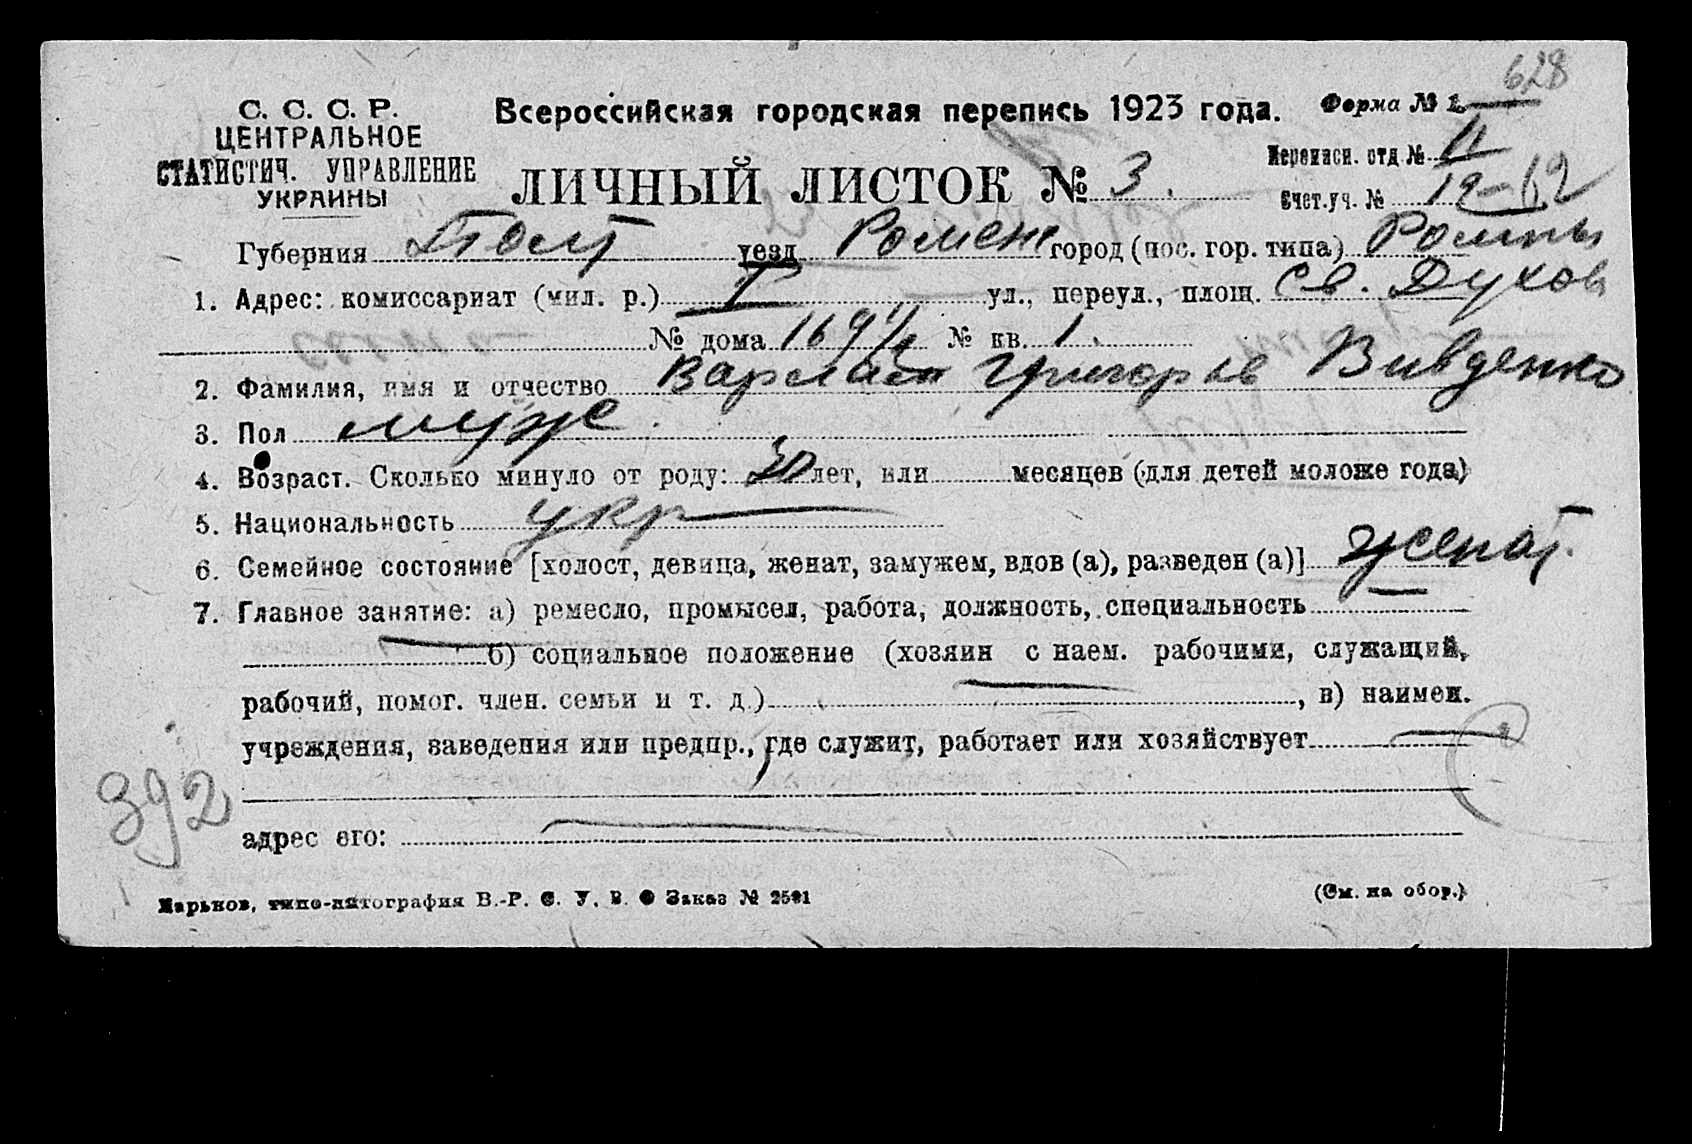 628
С. С. С. Р.
ЦЕНТРАЛЬНОЕ
СТАТИСТИЧ. УПРАВЛЕНИЕ
УКРАИНЫ
Всероссийская городская перепись 1923 года.
Форма № 1.
ЛИЧНЫЙ ЛИСТОК № 3.
Переписн. отд. № 11
Счет.уч. № 12-62
Губерния Полт уезд Ромен город (пос. гор. типа) Ромны
1. Адрес: комиссариат (мил. р.) I ул., переул., площ. Св. Духов
№ дома 169 1/2 № кв. 1.
2. Фамилия, имя и отчество Варлаам Григорьев Вивденко
3. Пол муж.
4. Возраст. Сколько минуло от роду: 30 лет, или месяцев (для детей моложе года)
5. Национальность укр
6. Семейное состояние [холост, девица, женат, замужем, вдов (а), разведен (а)] женат.
7. Главное занятие: а) ремесло, промысел, работа, должность, специальность —
б) социальное положение (хозяин с наем. рабочими, служащий,
рабочий, помог. член. семьи и т. д.) —, в) наимен.
учреждения, заведения или предпр., где служит, работает или хозяйствует —
392
адрес его: —
Харьков, типо-литография В.-Р. С. У. В. О Заказ № 2521
(См. на обор.)